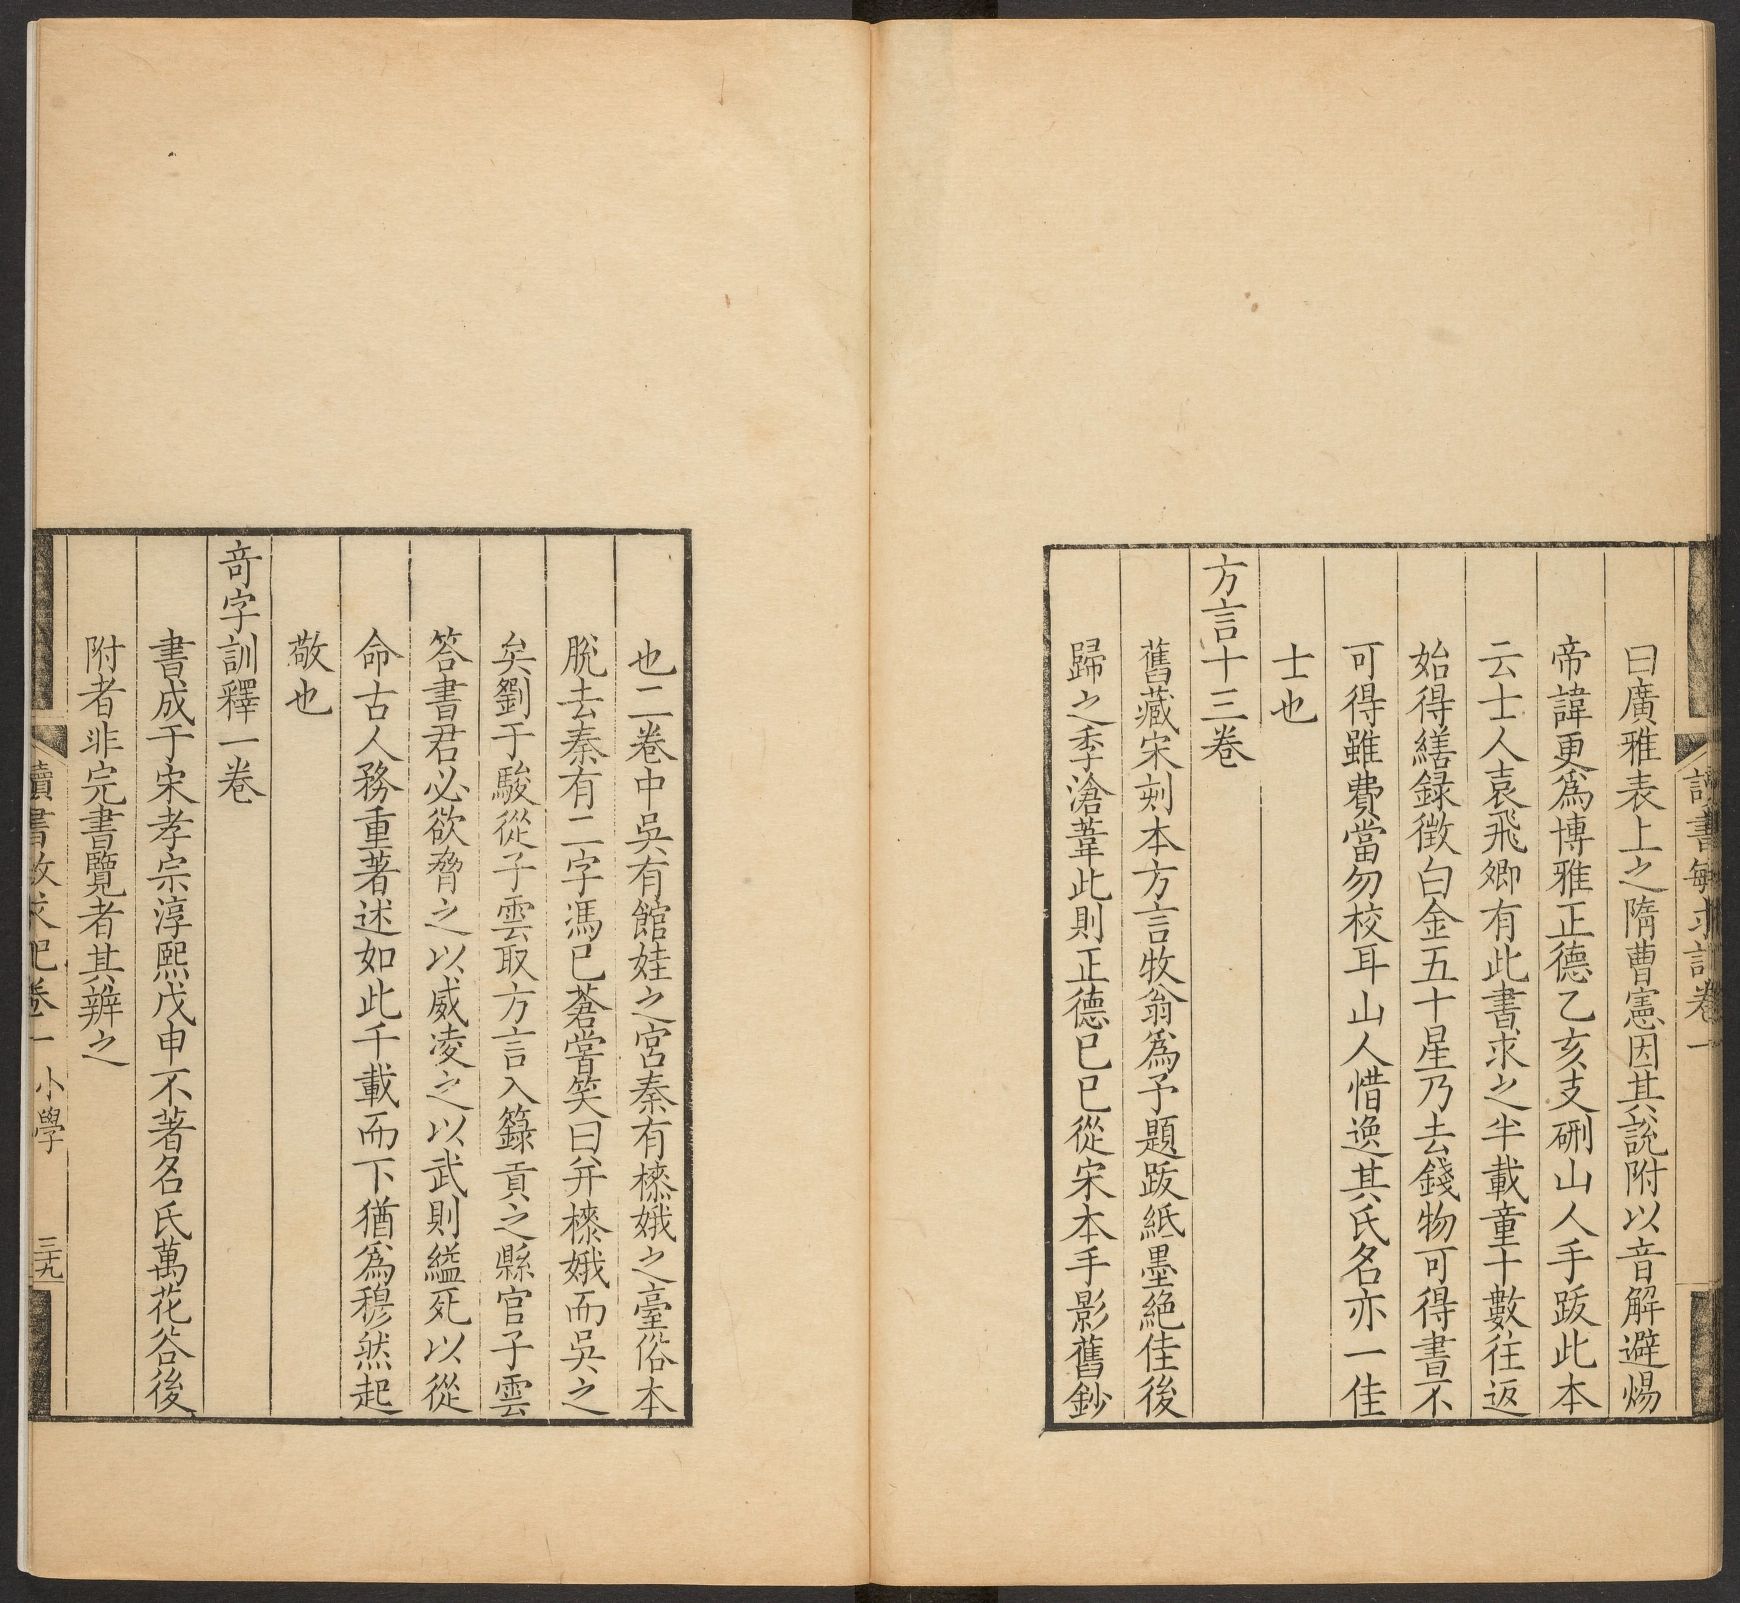 讀書敏求記卷一
曰廣雅表上之隋曹憲因其說附以音解避煬
帝諱更爲博雅正德乙亥支硎山人手跋此本
云士人袁飛卿有此書求之半載童十數往返
始得繕録徵白金五十星乃去錢物可得書不
可得雖費當勿校耳山人惜逸其氏名亦一佳
士也
方言十三卷
舊藏宋刻本方言牧翁爲予題跋紙墨絶佳後
歸之季滄葦此則正德己巳從宋本手影舊鈔
也二卷中吳有館娃之宮秦有榛娥之臺俗本
脫去秦有二字馮已蒼嘗笑曰并榛娥而吳之
矣劉于駿從子雲取方言入籙貢之縣官子雲
答書君必欲脅之以威淩之以武則縊死以從
命古人務重著述如此千載而下猶爲穆然起
敬也
奇字訓釋一卷
書成于宋孝宗淳熙戊申不著名氏萬花谷後
附者非完書覽者其辨之
讀書敏求記卷一 小學 三十九